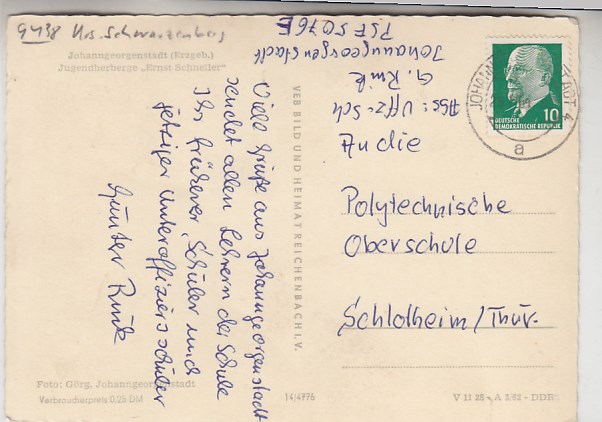 9438 Krs. Schwarzenberg
Johanngeorgenstadt (Erzgeb.)
Jugendherberge „Ernst Schneller"
Viele Grüße aus Johanngeorgenstadt
sendet allen Lehrern der Schule
Ihr früherer Schüler und
jetziger Unteroffiziersschüler
Günter Rink
Foto: Görg, Johanngeorgenstadt
Verbraucherpreis 0,25 DM
VEB BILD UND HEIMAT REICHENBACH I. V.
14/4776
Abs: Uffz.-Sch
G. Rink
Johanngeorgenstadt
PSF 5076 E
DEUTSCHE
DEMOKRATISCHE REPUBLIK
10
a
An die
Polytechnische
Oberschule
Schlotheim/Thür.
V 11 28 A 3/62 - DDR